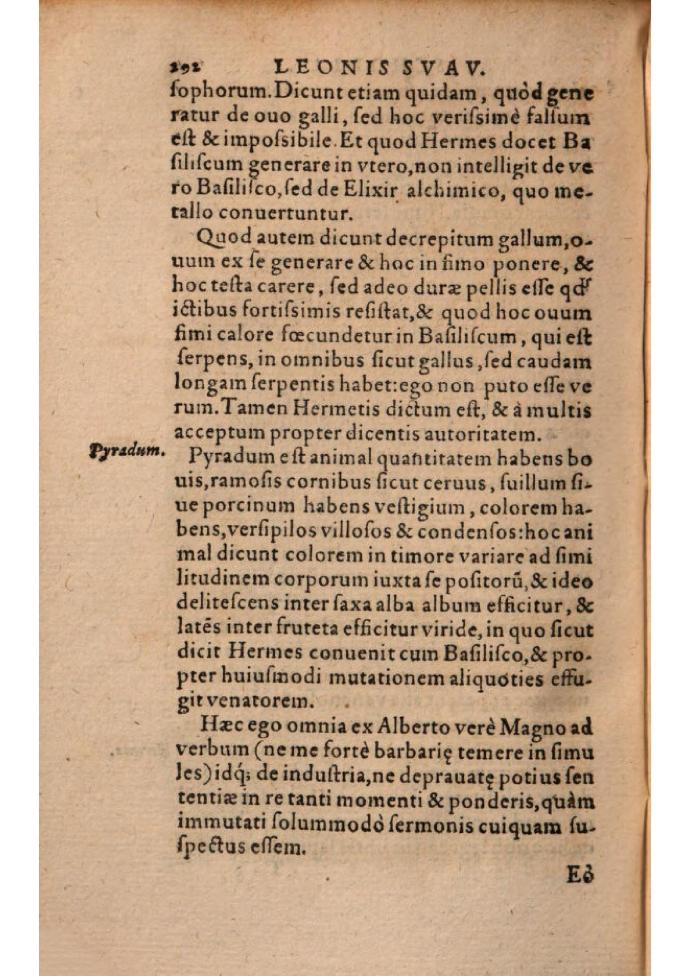 292 LEONIS SVAV.
ſophorum. Dicunt etiam quidam, quòd gene
ratur de ouo galli, ſed hoc veriſsimè falſum
eſt & impoſsibile. Et quod Hermes docet Ba
ſiliſcum generare in vtero, non intelligit de ve
ro Baſiliſco, ſed de Elixir alchimico, quo me-
tallo conuertuntur.
Quod autem dicunt decrepitum gallum, o-
uum ex ſe generare & hoc in fimo ponere, &
hoc teſta carere, ſed adeo duræ pellis eſſe qđ
ictibus fortiſsimis reſiſtat, & quod hoc ouum
fimi calore fœcundetur in Baſiliſcum, qui eſt
ſerpens, in omnibus ſicut gallus, ſed caudam
longam ſerpentis habet: ego non puto eſſe ve
rum. Tamen Hermetis dictum eſt, & à multis
acceptum propter dicentis autoritatem.
Pyradum.
Pyradum eſt animal quantitatem habens bo
uis, ramoſis cornibus ſicut ceruus, ſuillum ſi-
ue porcinum habens veſtigium, colorem ha-
bens, verſipilos villoſos & condenſos: hoc ani
mal dicunt colorem in timore variare ad ſimi
litudinem corporum iuxta ſe poſitorū, & ideo
deliteſcens inter ſaxa alba album efficitur, &
latēs inter fruteta efficitur viride, in quo ſicut
dicit Hermes conuenit cum Baſiliſco, & pro-
pter huiuſmodi mutationem aliquoties effu-
git venatorem.
Hæc ego omnia ex Alberto verè Magno ad
verbum (ne me fortè barbarię temere in ſimu
les) idq; de induſtria, ne deprauatę potius ſen
tentiæ in re tanti momenti & ponderis, quàm
immutati ſolummodò ſermonis cuiquam ſu-
ſpectus eſſem.
Eò